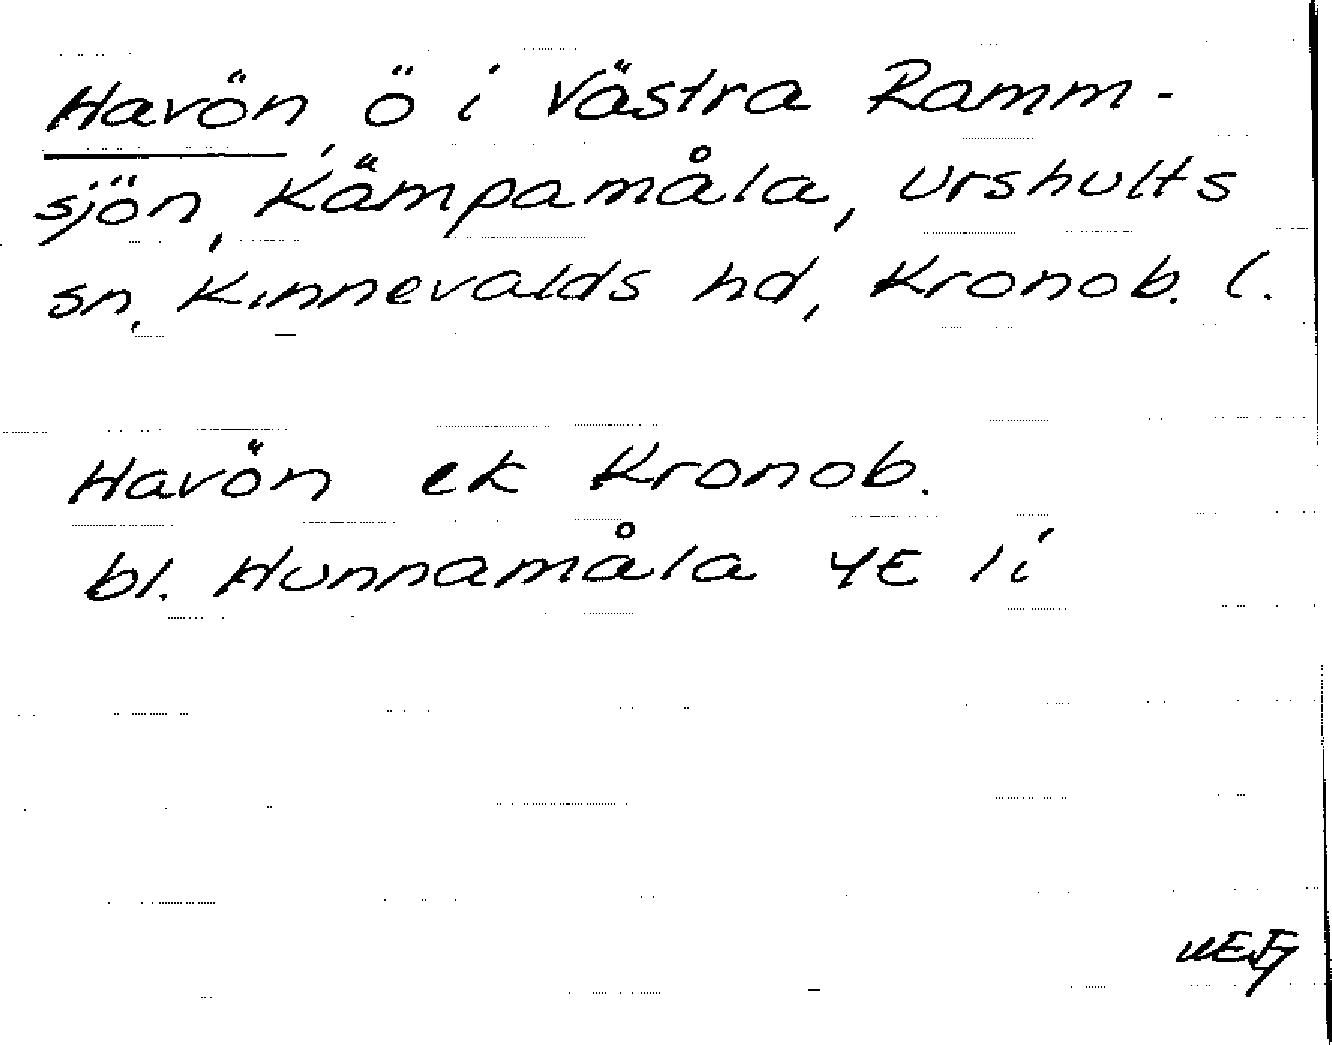 Havön, ö i Västra Ramm-
sjön, Kämpamåla, Urshults
sn, Kinnevalds hd, Kronob. l.
Havön ek Kronob.
bl. Hunnamåla 4E 1i